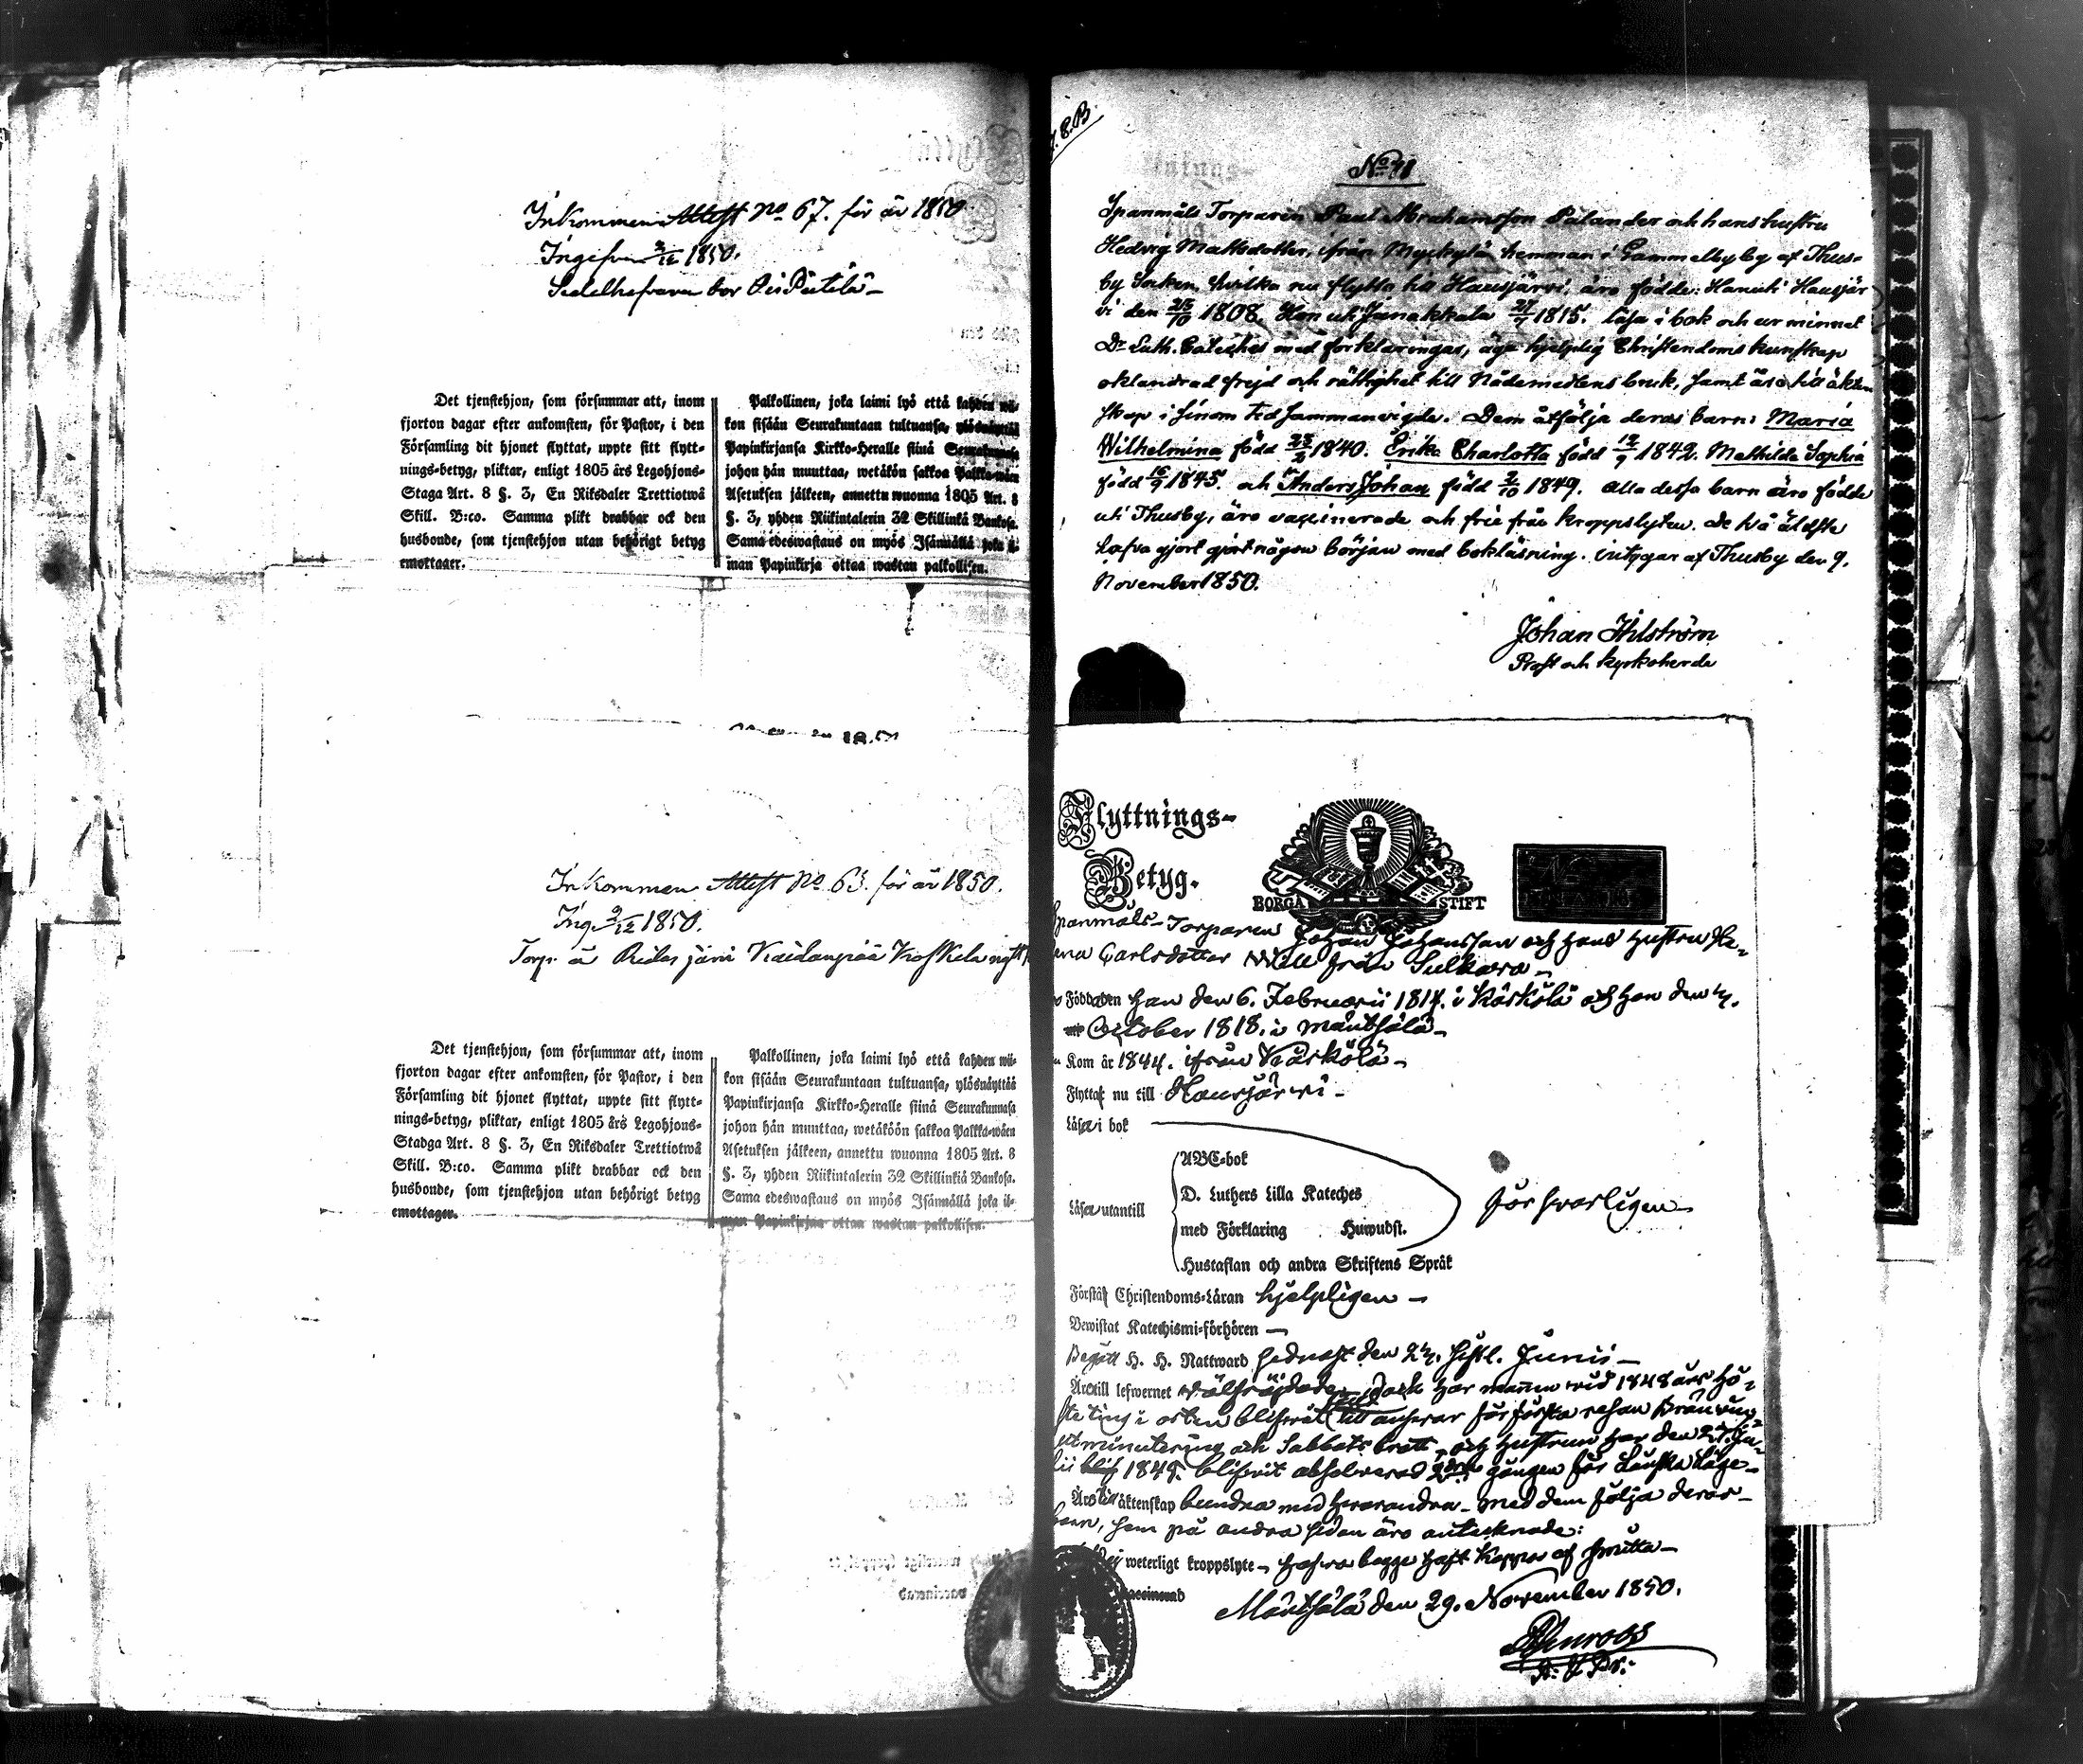 Inkommen Attest No 67. för år 1850.
Ingifven 2/12 1850.
Sedelhafvaren bor
Det tjenstehjon, som försummar att, inom
fjorton dagar efter ankomsten, för Pastor, i den
Församling dit hjonet flyttat, uppte sitt flytt-
nings-betyg, pliktar, enligt 1805 års Legohjons-
Staga Art. 8 §. 3, En Riksdaler Trettiotwå
Skill. B:co. Samma plikt drabbar ock den
husbonde, som tjenstehjon utan behörigt betyg
emottager.
Palkollinen, joka laimi lyö että kahden wii-
kon sisään Seurakuntaan tultuansa, ylösnäyttää
Papinkirjansa Kirkko-Heralle siinä Seurakunnasa
johon hän muuttaa, wetäkön sakkoa Palkka-wäen
Asetuksen jälkeen, annettu wuonna 1805 Art. 8
§. 3, yhden Riikintalerin 32 Skillinkiä Bankosa.
Sama edeswastaus on myös Isännällä joka il-
man Papinkirja ottaa wastan palkollisen.
Inkommen Attest No 63. för år 1850.
Ing. 9/12 1850.
Torp.
Det tjenstehjon, som försummar att, inom
fjorton dagar efter ankomsten, för Pastor, i den
Församling dit hjonet flyttat, uppte sitt flytt-
nings-betyg, pliktar, enligt 1805 års Legohjons-
Stadga Art. 8 §. 3, En Riksdaler Trettiotwå
Skill. B:co. Samma plikt drabbar ock den
husbonde, som tjenstehjon utan behörigt betyg
emottager.
Palkollinen, joka laimi lyö että kahden wii-
kon sisään Seurakuntaan tultuansa, ylösnäyttää
Papinkirjansa Kirkko-Heralle siinä Seurakunnasa
johon hän muuttaa, wetäköön sakkoa Palkka-wäen
Asetuksen jälkeen, annettu wuonna 1805 Art. 8
§. 3, yhden Riikintalerin 32 Skillinkiä Bankosa.
Sama edeswastaus on myös Isännällä joka il-
man Papinkirjaa ottaa wastan palkollisen.
8.B.
No 71
Spanmåls Torparen Paul Abrahamsson Palander och hans hustru
Hedvig Mattsdotter, ifrån Myllykylä hemman i Gammelby by af Thus-
by Socken, hvilka nu flytta till Hausjärvi, äro födde: Han uti Hausjär
vi den 25/10 1808. Hon uti Janakkala 27/7 1815. läsa i bok och ur minnet
Dr Luth. Cateches med förklaringar, äga hjelplig Christendoms kunskap
oklandrad frejd och rättighet till Nådemedlens bruk, samt äro till äkten
skap i sinom tid sammanvigde. Dem åtfölja deras barn: Maria
Wilhelmina född 23/2 1840. Erika Charlotta född 12/9 1842. Mathilda Sophia
född 16/9 1845. och Anders Johan född 2/10 1849. Alla dessa barn äro födde
uti Thusby, äro vaccinerade och frie från kroppslyten. De två äldste
hafva gjort gjort någon början med bokläsning. intygar af Thusby den 9.
November 1850.
Johan Hilström
Prost och kyrkoherde
Flyttnings-
Betyg.
BORGÅ STIFT
Spanmåls-Torparen Johan Johansson och hans hustru He-
lena Carlsdotter Mäll från Sulkava
Född den han den 6. Februarii 1814. i Kärkölä och hon den 4.
October 1818. i Mäntsälä
Kom år 1844. ifrån Kärkölä
Flytta nu till Hausjärvi
Läsa i bok
Läsa utantill
ABC-bok
D. Luthers Lilla Kateches
med Förklaring Huwudst.
Hustaflan och andra Skriftens Språk
försvarligen
Förstå Christendoms-Läran hjelpligen
Bewistat Katechismi-förhören
Begått H. H. Nattward sednast den 24. sistl. Junii
Äro till lefwernet wälfräjdade, dock har mannen vid 1848 års Hö-
ste ting i orten blifvit fäld till ansvar för första resan Bränvins
utminutering och Sabbats brott, och hustrun har den 27. Ju-
lii 1845. blifvit absolverad 2dra gången för Lönska läge
Äro till äktenskap bundna med hvarandra. Med dem följa deras
barn, som på andra sidan äro antecknade:
weterligt kroppslyte, hafva begge haft koppor af smitta
vaccinerad
Mäntsälä den 29. November 1850.